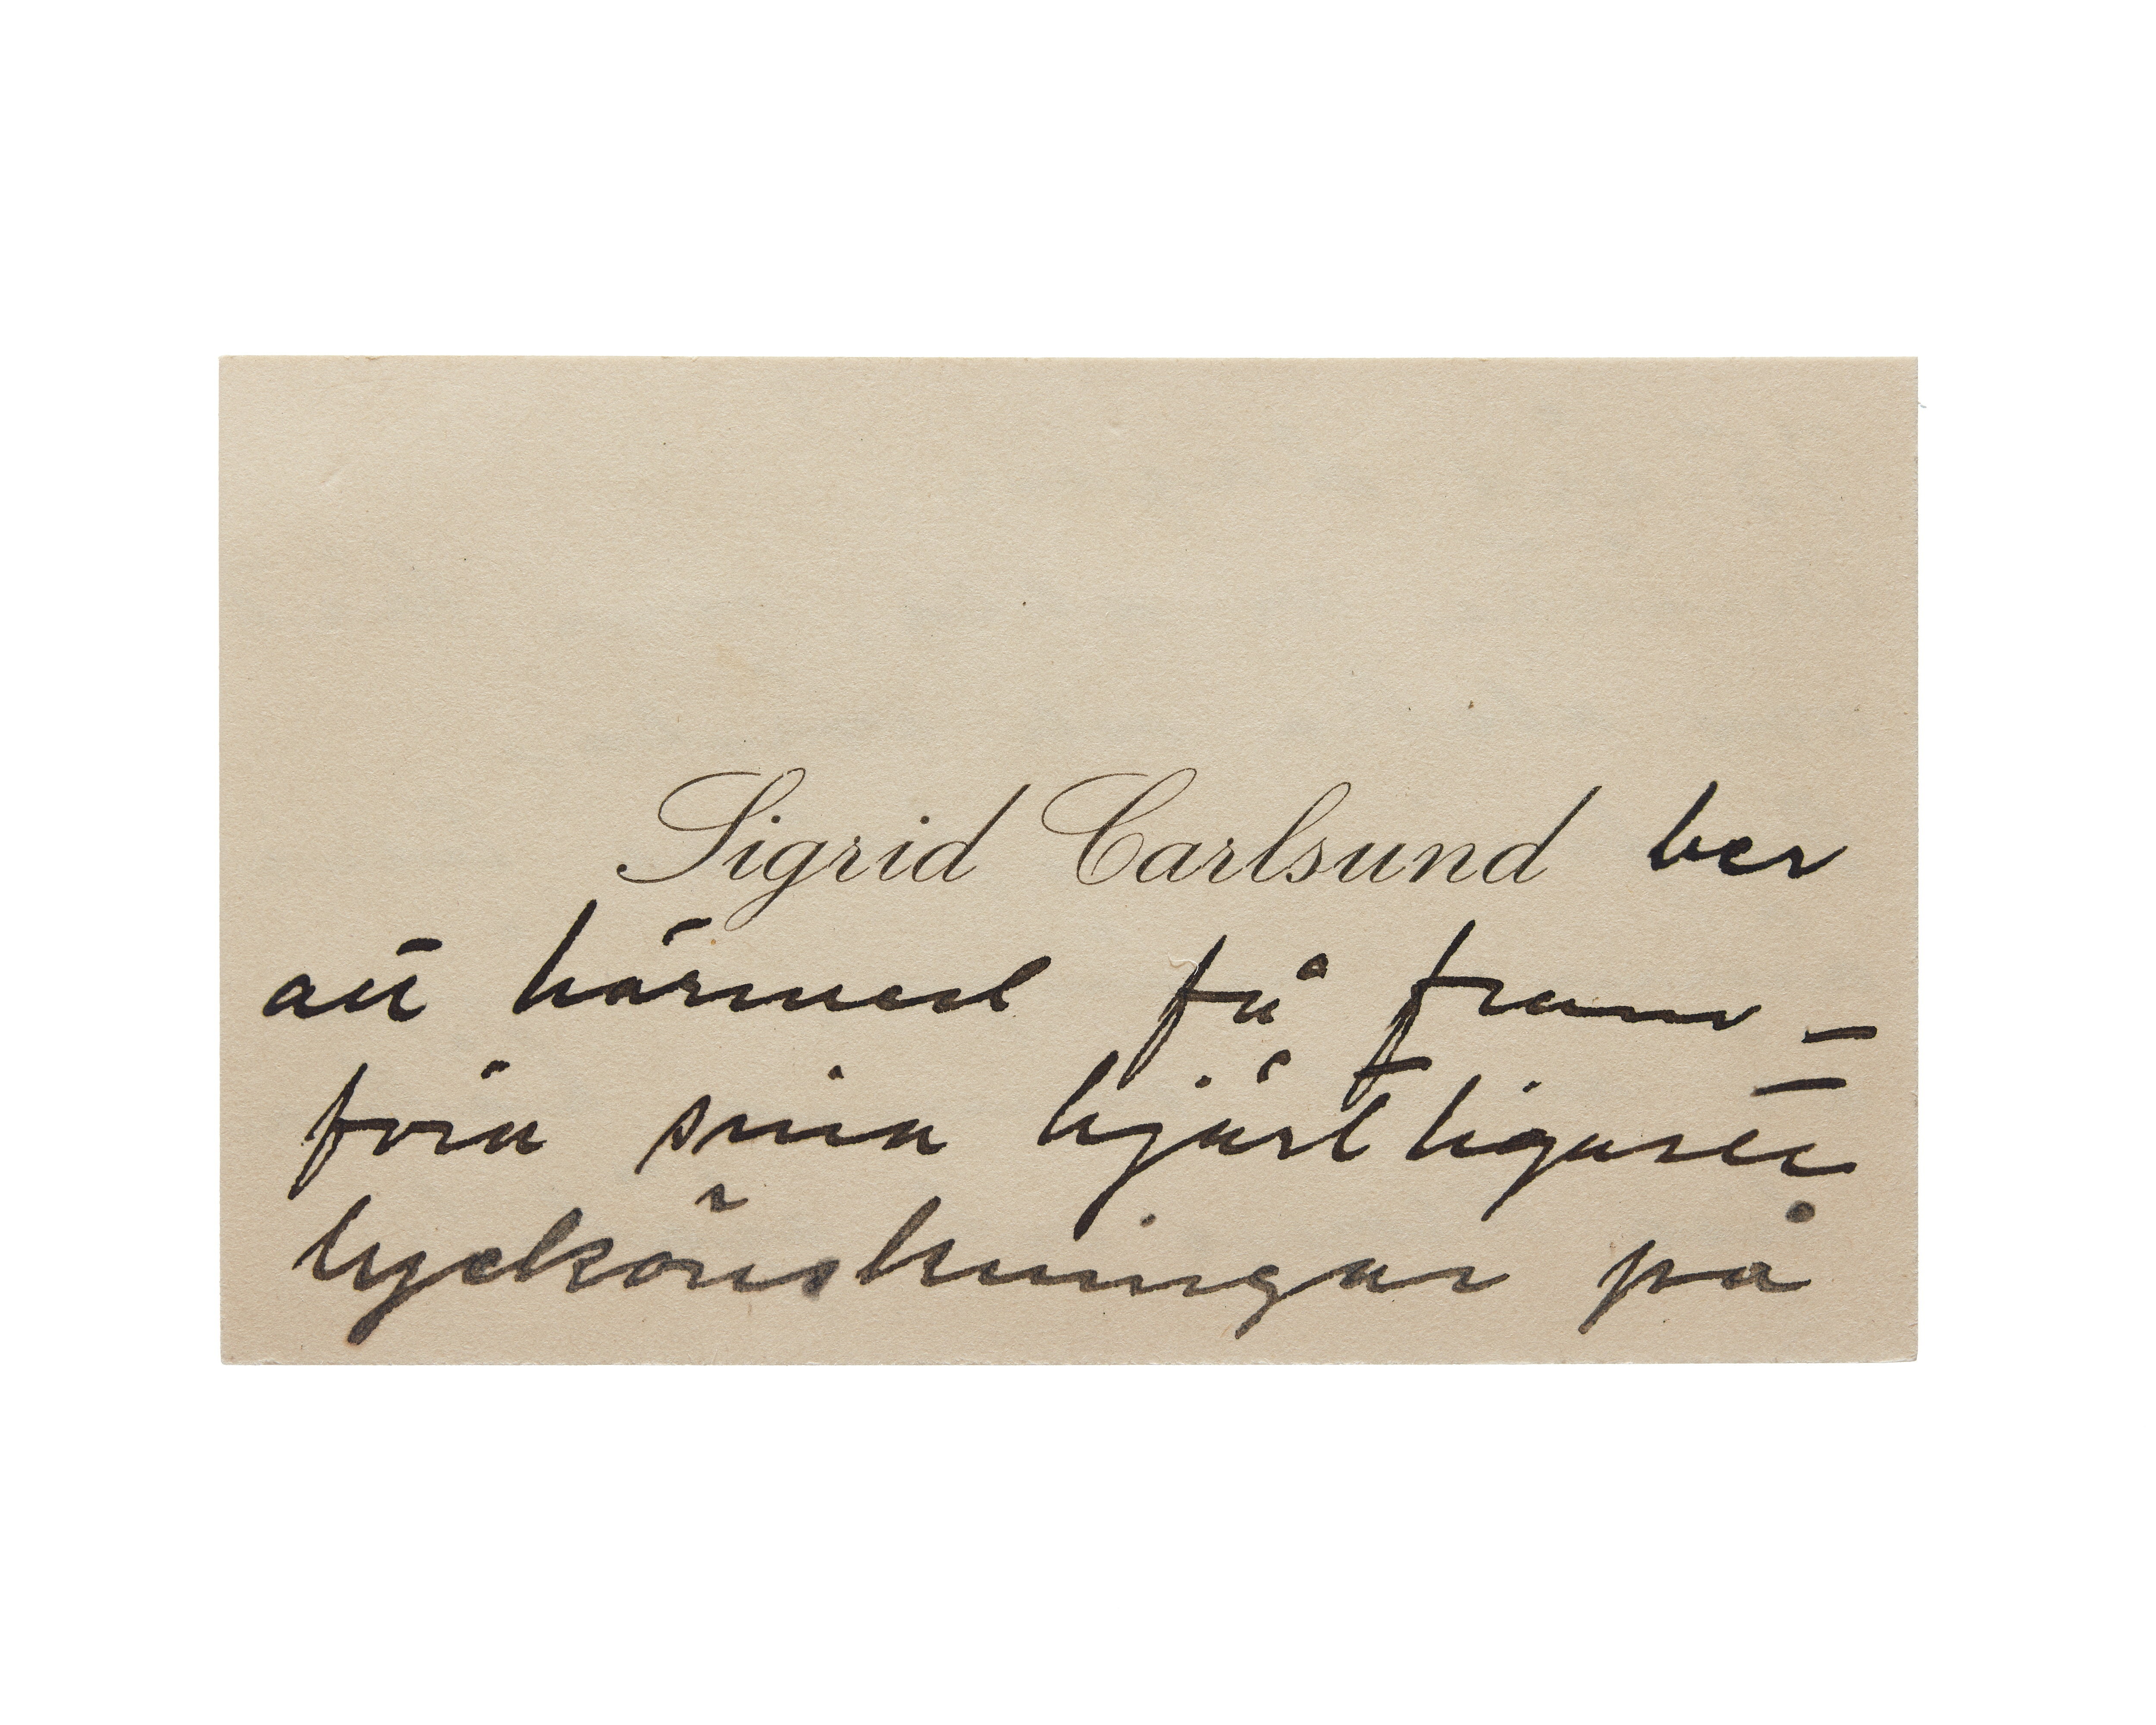 Sigrid Carlsund ber
att härmed få fram-
föra sina hjärtligaste
lyckönskningar på